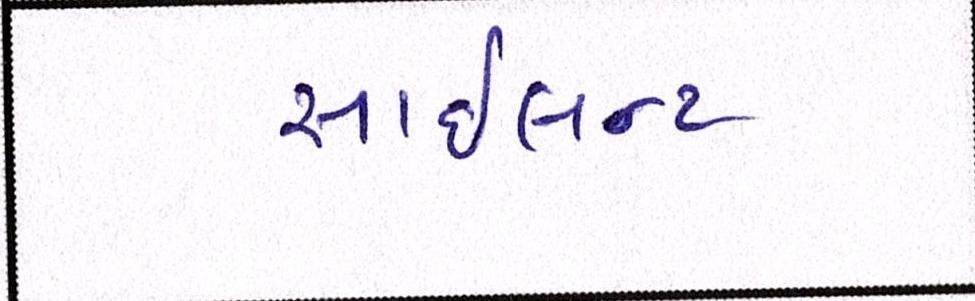 સાઈલન્ટ